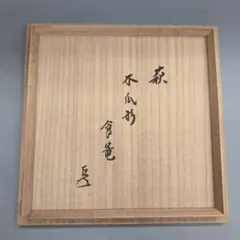 萩
木瓜形
食籠